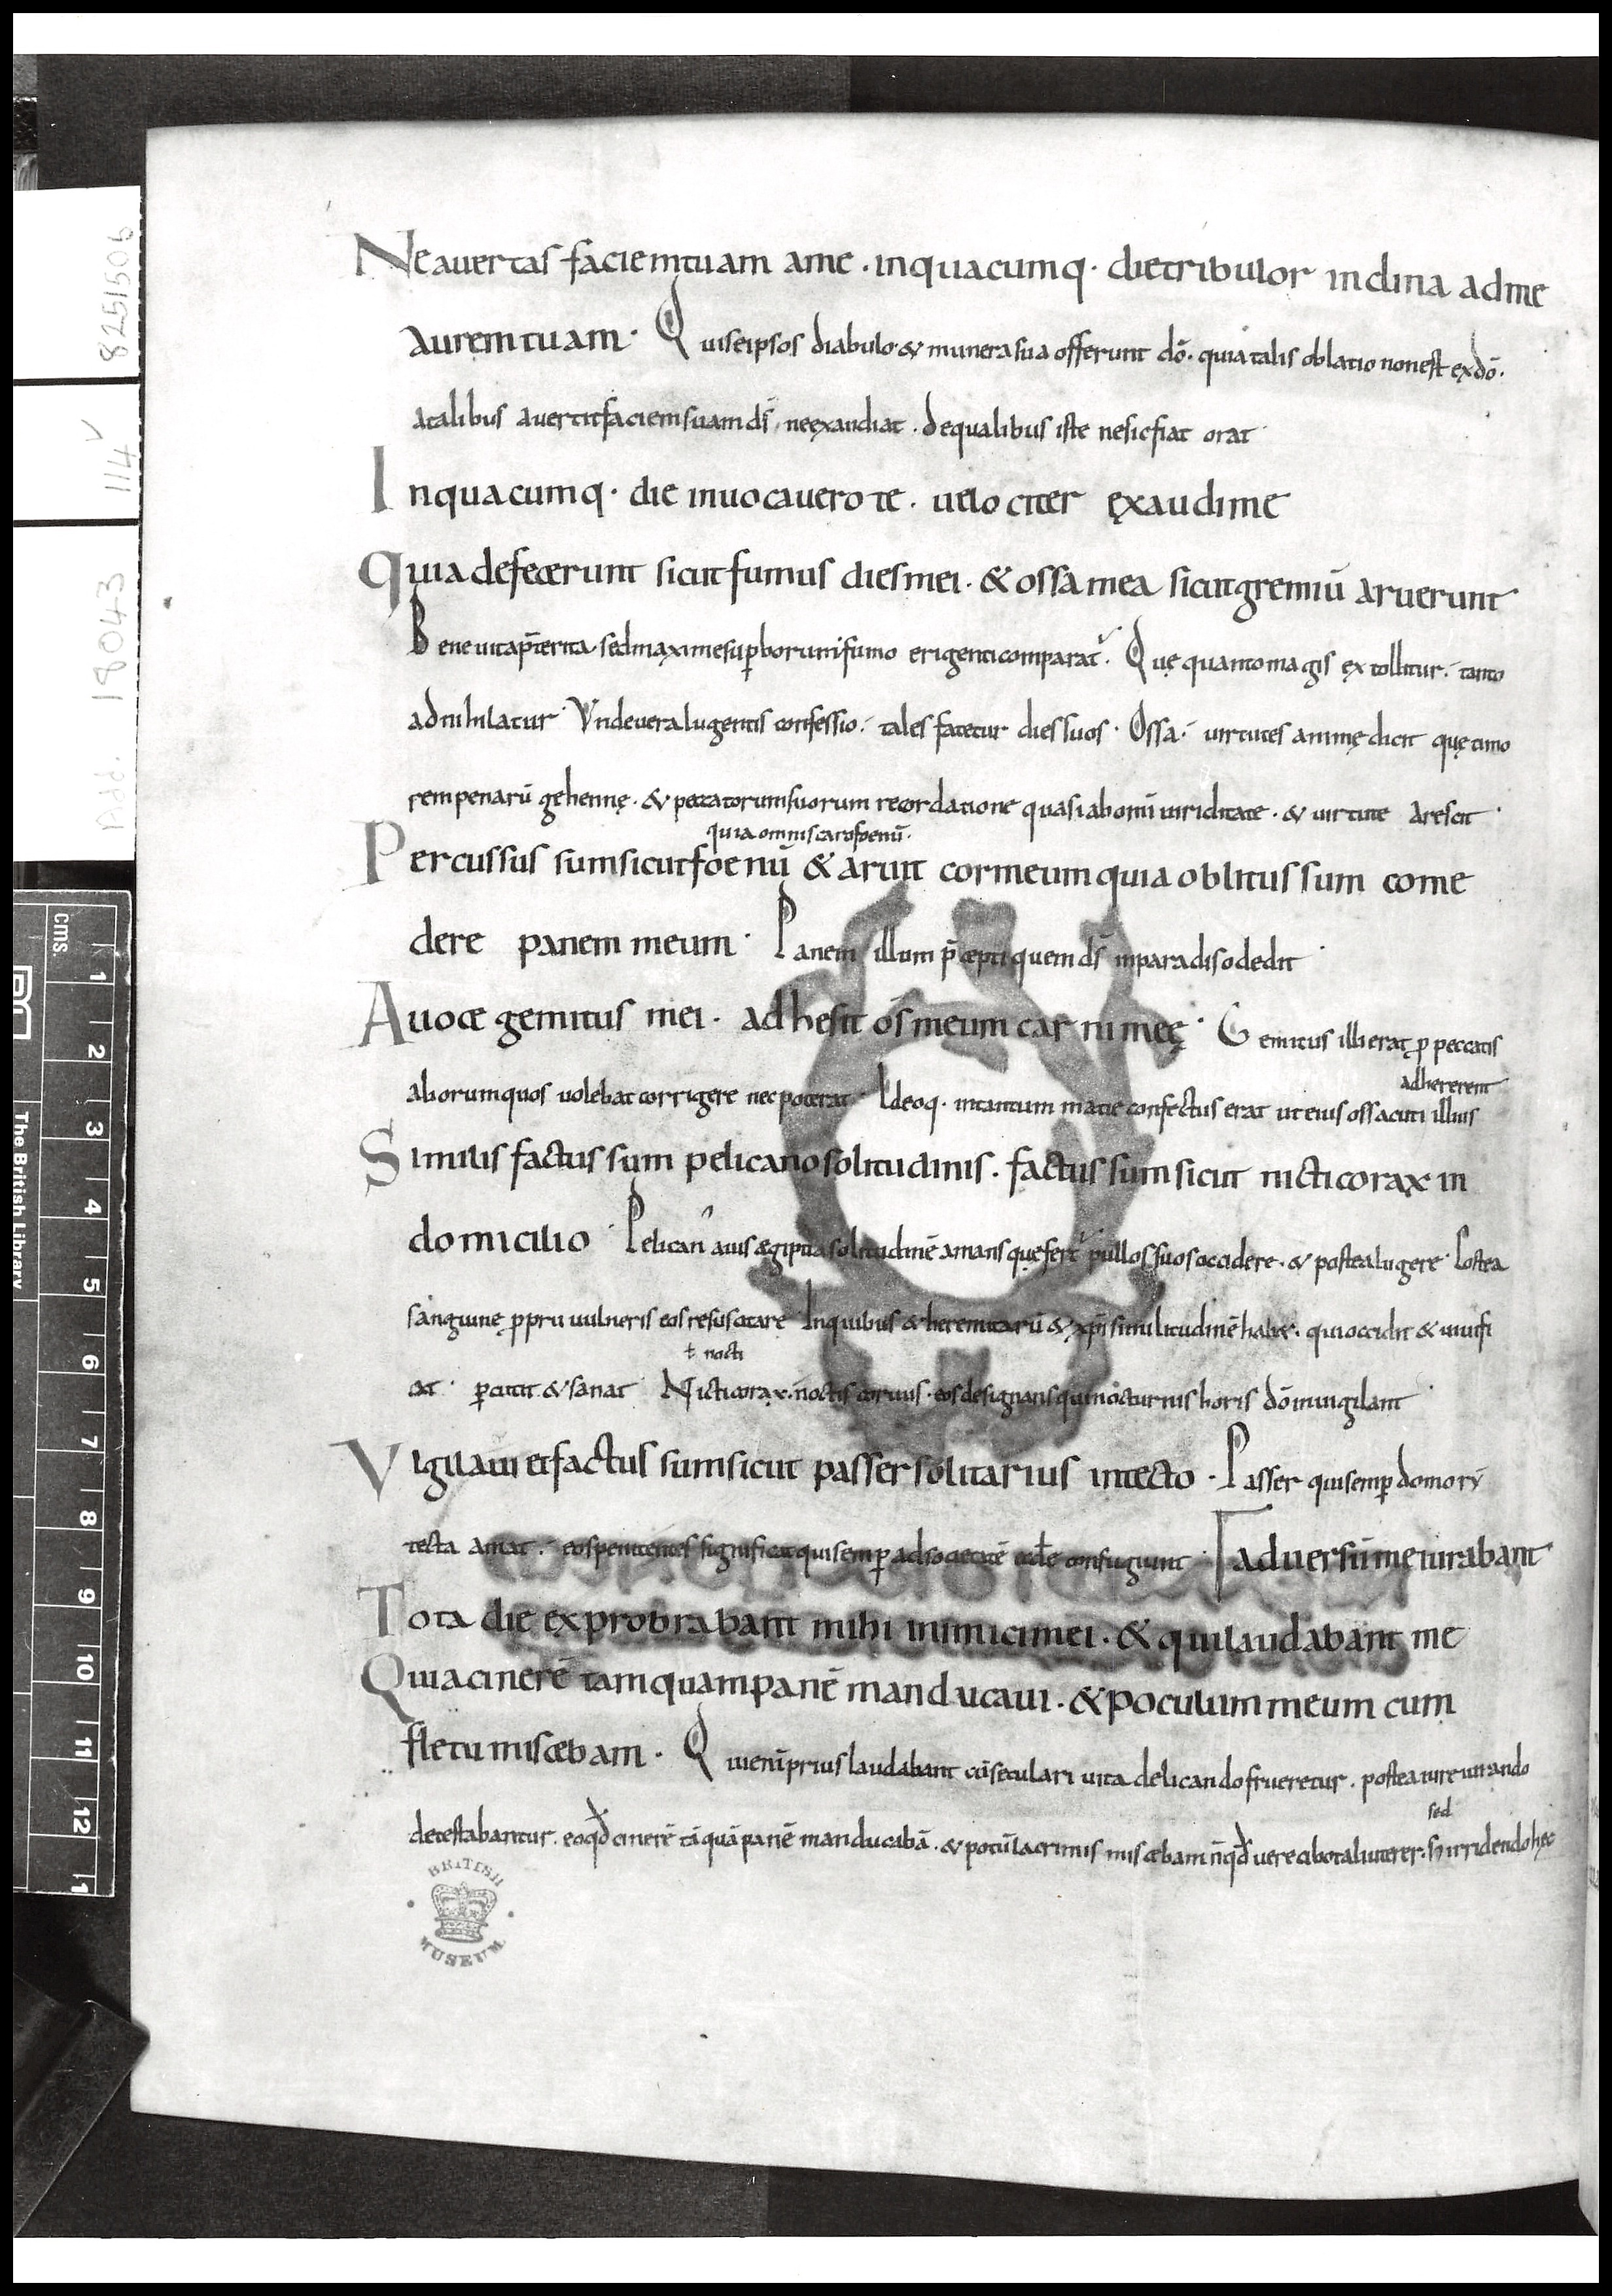 Ne avertas faciem tuam a me · in quacumq· die tribulor inclina ad me
aurem tuam · Qui se ipsos diabulo · & munera sua offerunt dō · quia talis oblatio non est ex dō ·
a talibus avertit faciem suam ds̄ · ne exaudiat · de qualibus iste ne sic fiat orat ·
In quacumq· die invocavero te · velociter ęxaudi me
Quia defecerunt sicut fumus dies mei · & ossa mea sicut gremiū aruerunt
Bene vita p̄terita · sed maxime sup̱borum fumo erigenti comparat̃ · Quę quanto magis ęxtollitur · tanto
adnihilatur · Unde vera lugentis confessio · tales fatetur dies suos · Ossa · virtutes animę dicit quę timo
rem penarū gehennę · & peccatorum suorum recordatione quasi ab omī viriditate · & virtute arescit ·
quia omnis caro foenū ·
Percussus sum sicut foenū & aruit cor meum quia oblitus sum come
dere panem meum · Panem illum p̄cepti quem ds̄ in paradiso dedit ·
A voce gemitus mei · adhesit os meum carni meę · Gemitus illi erat p̱ peccatis
aborum quos volebat corrigere nec poterat · Ideoq· in tantum macie confectus erat ut eius ossa cuti illius
adhererent
Similis factus sum pelicano solitudinis · factus sum sicut nicticorax in
domicilio · Pelican᾽ avis ægiptia solitudinē amans quę fert̃ pullos suos occidere · & postea lugere · Postea
sanguine p̱prii vulneris eos resuscitare · In quibus & heremitarū & xp̄i similitudinē habet · qui occidit & vivifi
ł nocti
cat · p̱cutit & sanat · Nicticorax · noctis corvus · eos designans qui nocturnis horis dō invigilant ·
Vigilavi et factus sum sicut passer solitarius in tecto · Passer qui semp̱ domorū
tecta amat · eos penitentes significat qui semp̱ ad societatē eccłe confugiunt · adversū me iurabant
Tota die exprobrabant mihi inimici mei · & qui laudabant me
Quia cinerē tamquam panē manducavi · & poculum meum cum
fletu miscebam · Qui enī prius laudabant cū seculari vita delicando frueretur · postea iure iurando
detestabantur · eo qđ cinerē tāquā panē manducabā · & potū lacrimis miscebam n̄ qđ vere cibo tali uterer · s irridendo hęc
sed
BRITISH
MUSEUM
Add. 18043
114v
8251506
cms.
1
2
3
4
5
6
7
8
9
10
11
12
1
The British Library